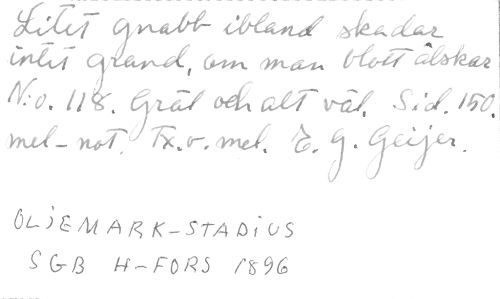 Litet gnabb ibland skadar
intet grand, om man blott älskar
N:o. 118. Gräl och allt väl. Sid. 150.
mel-not. Tx.o.mel. E. G. Geijer.
OLJEMARK-STADIUS
SGB H-FORS 1896